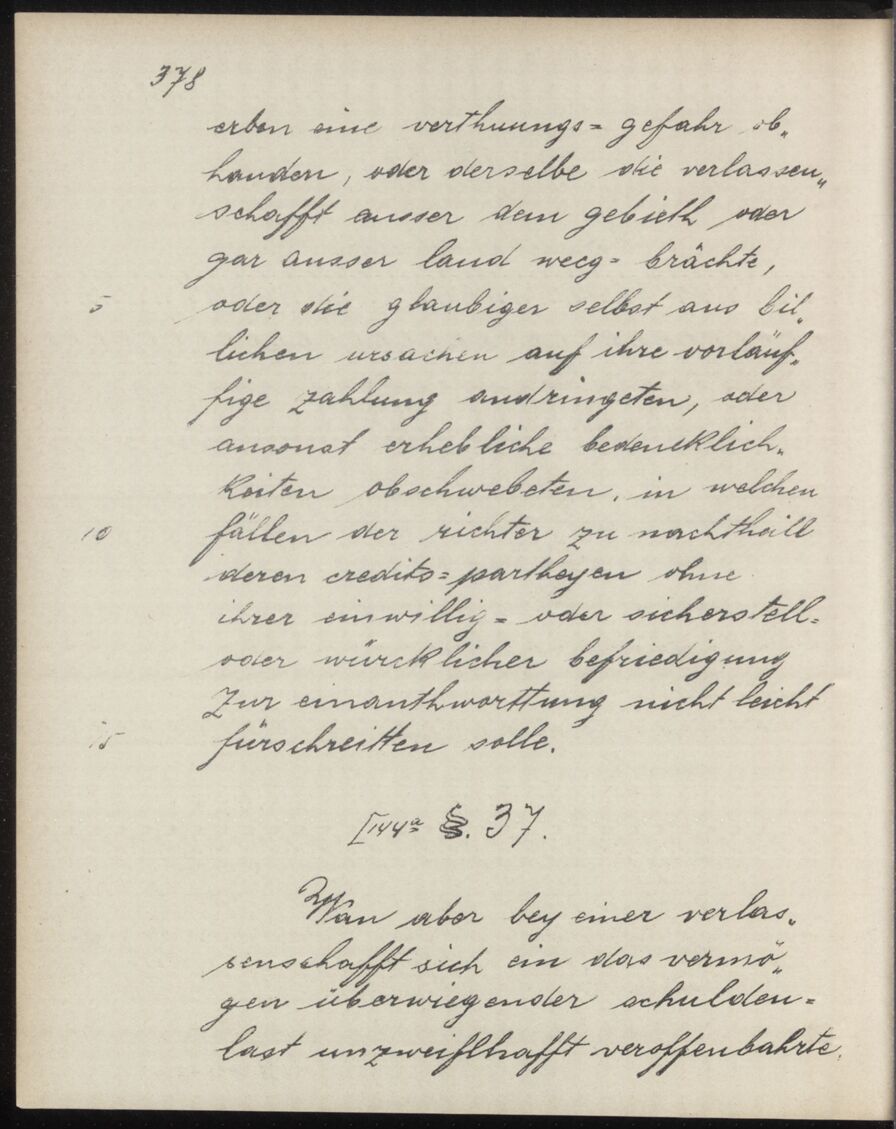 378
erben eine verthuungs= gefahr ob„
handen, oder derselbe die verlassen„
schafft ausser dem gebieth oder
gar ausser land weeg= brächte,
5 oder die glaubiger selbst aus bil„
lichen ursachen auf ihre vorläuf„
fige zahlung andringeten, oder
ansonst erhebliche bedencklich„
keiten obschwebeten, in welchen
10 fällen der richter zu nachtheill
deren credits=partheyen ohne
ihrer einwillig= oder sicherstell=
oder würcklicher befriedigung
zur einanthworttung nicht leicht
15 fürschreitten solle.
[144a §. 37.
Wan aber bey einer verlas„
senschafft sich ein das vermö„
gen überwiegender schulden=
last unzweiflhafft veroffenbahrte,